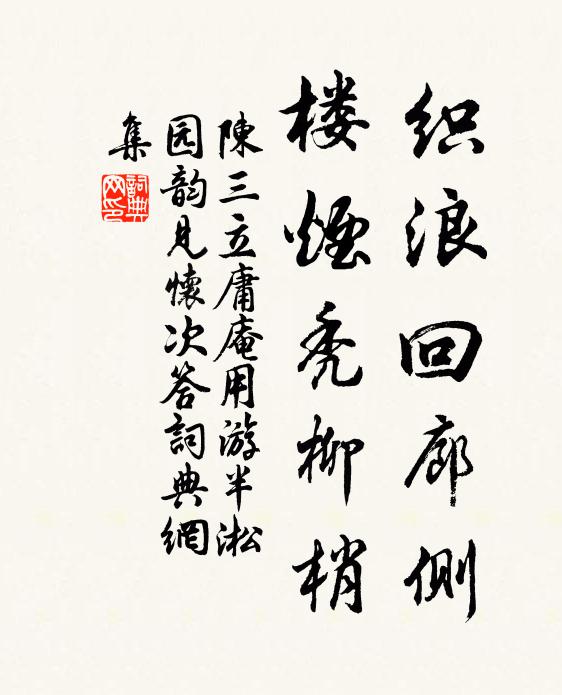 织浪回廊侧
楼烟秃柳梢
陳三立庸庵用游半淞
园韵见懷次答詞典網
集
詞典
网印